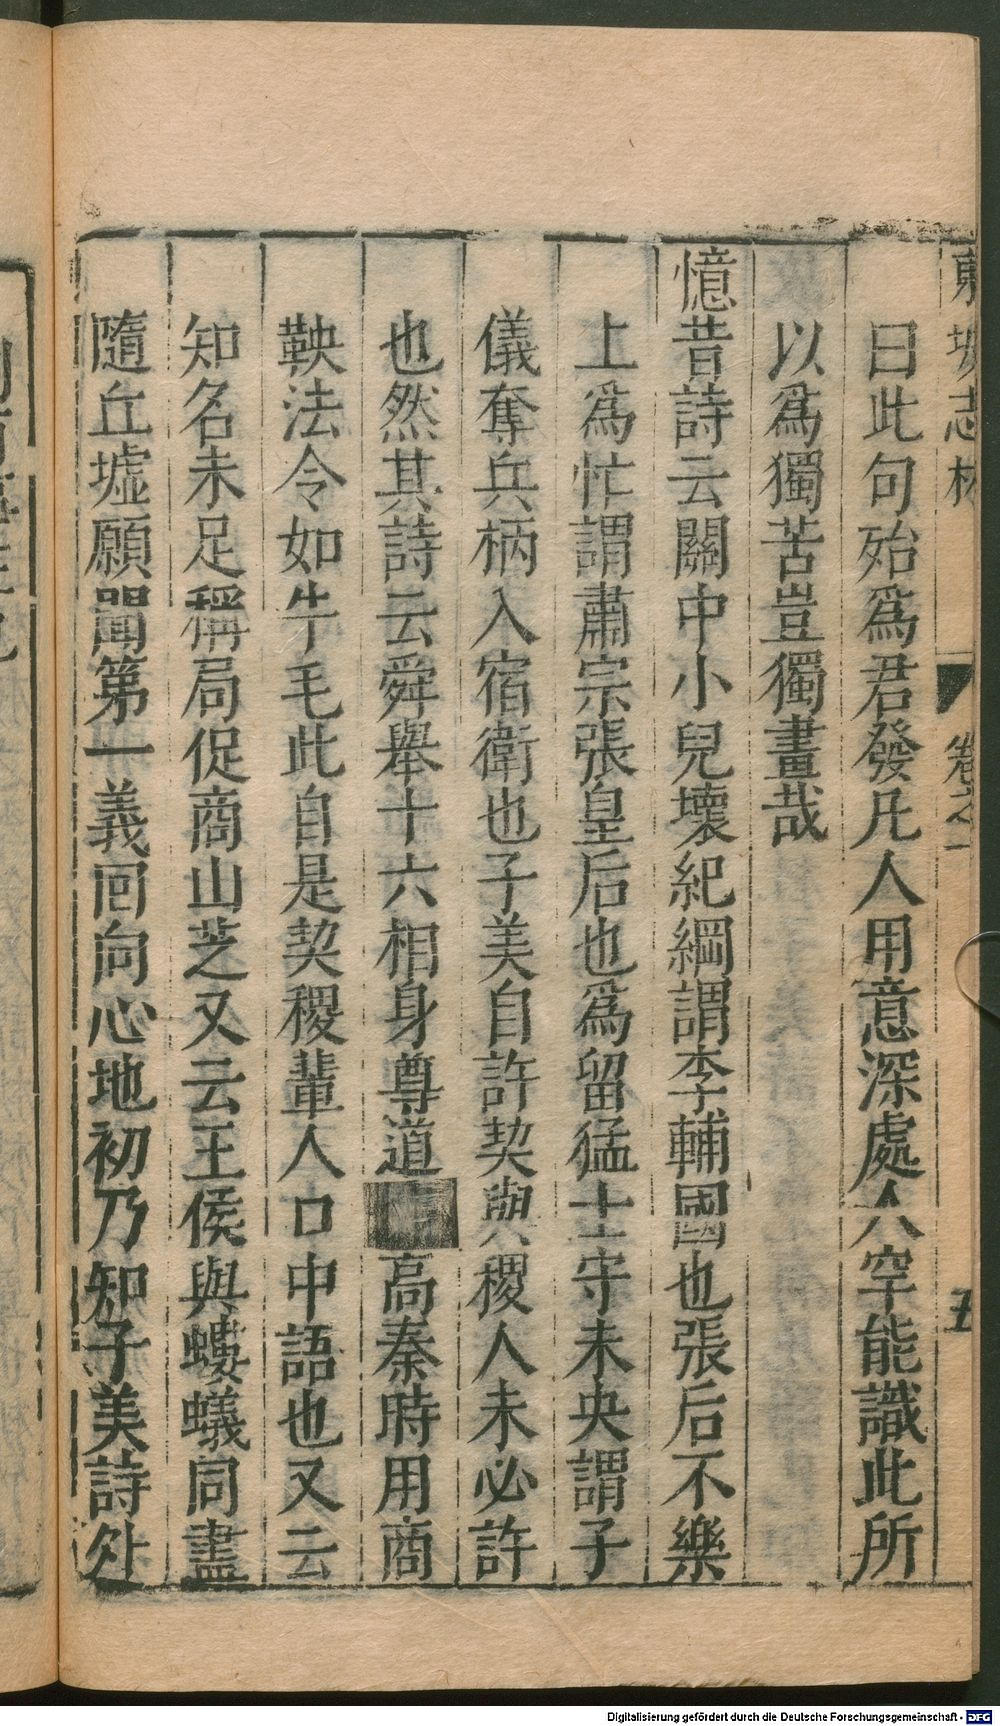 東坡志林 卷之一 五
曰此句殆爲君發凡人用意深處人罕能識此所
以爲獨苦豈獨畫哉
憶昔詩云關中小兒壞紀綱謂李輔國也張后不樂
上爲忙謂肅宗張皇后也爲留猛士守未央謂子
儀奪兵柄入宿衛也子美自許契與稷人未必許
也然其詩云舜舉十六相身尊道高秦時用商
鞅法令如牛毛此自是契稷輩人口中語也又云
知名未足稱局促商山芝又云王侯與螻蟻同盡
隨丘墟願聞第一義回向心地初乃知子美詩处
Digitalisierung gefördert durch die Deutsche Forschungsgemeinschaft - DFG